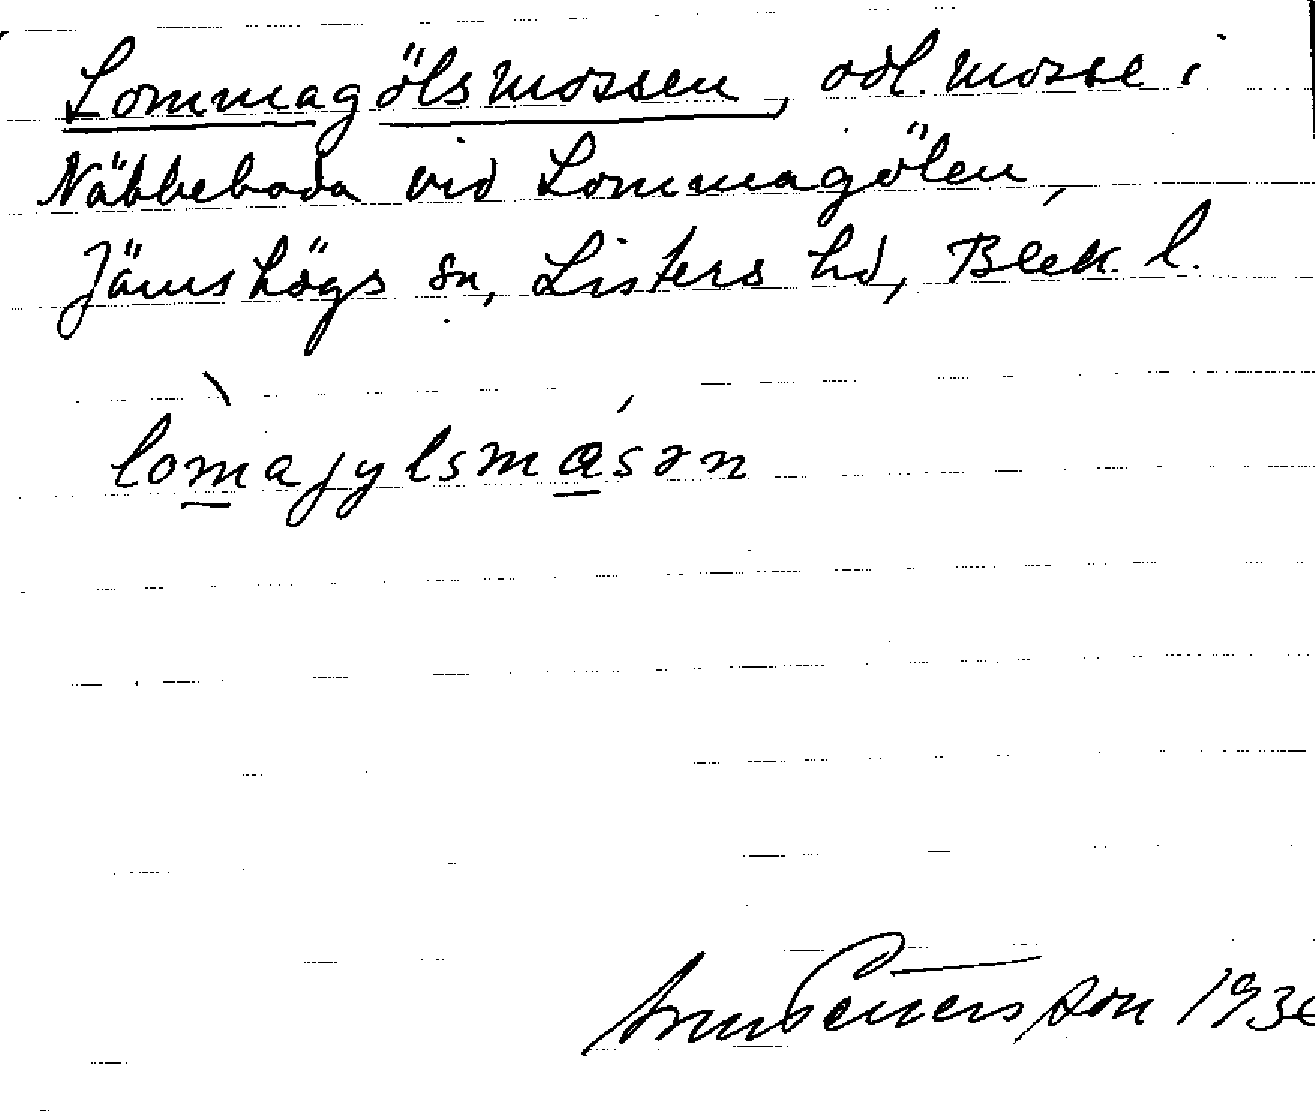 Lommagölsmossen, odl. mosse i
Näbbeboda vid Lommagölen,
Jämshögs sn, Listers hd, Blek. l.
lòmajylsmǽsən
Pettersson